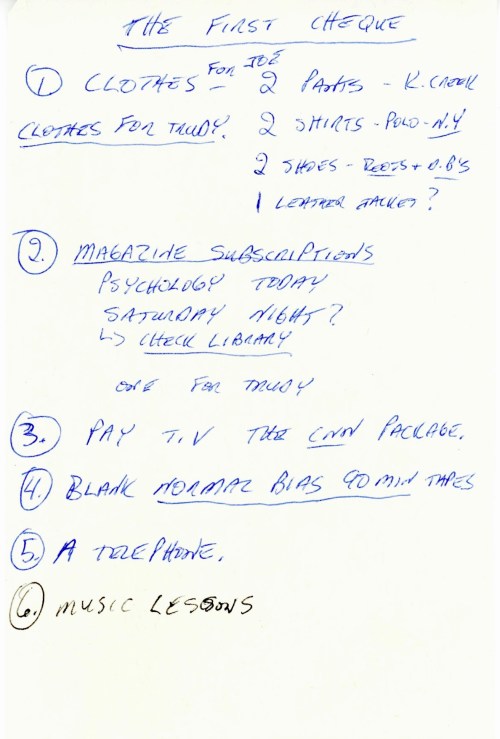 THE FIRST CHEQUE
① CLOTHES FOR JOE - 2 PANTS - K. CREEK
CLOTHES FOR TRUDY. 2 SHIRTS - POLO - N.Y
2 SHOES - ROOTS + D.B'S
1 LEATHER JACKET?
2. MAGAZINE SUBSCRIPTIONS
PSYCHOLOGY TODAY
SATURDAY NIGHT?
↳ CHECK LIBRARY
ONE FOR TRUDY
3. PAY T.V THE CNN PACKAGE.
4. BLANK NORMAL BIAS 90 MIN TAPES
5. A TELEPHONE.
6. MUSIC LESSONS